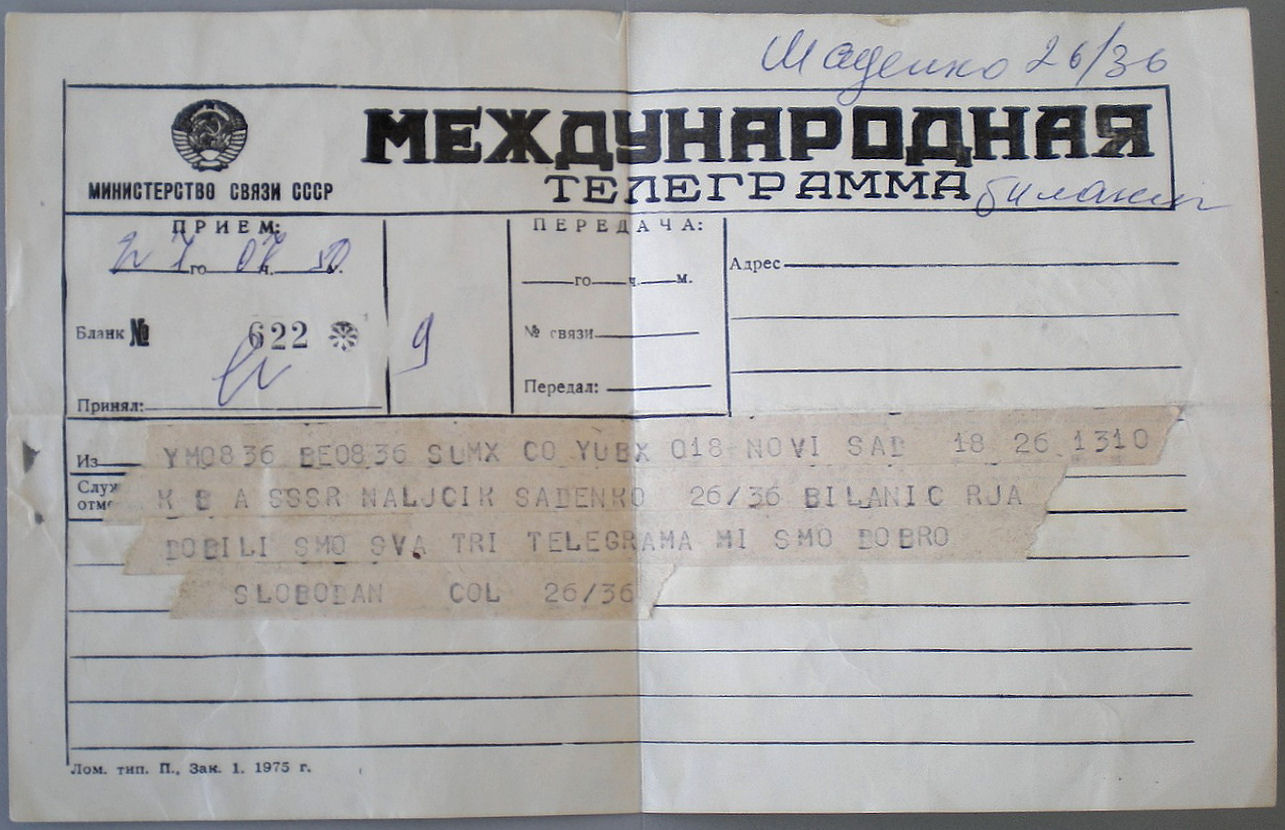 Шаденко 26/36
МЕЖДУНАРОДНАЯ
ТЕЛЕГРАММА
МИНИСТЕРСТВО СВЯЗИ СССР
ПРИЕМ:
27 го 07 ч. 50 м.
Бланк № 622
9
Принял:
ПЕРЕДАЧА:
го ч. м.
№ связи
Передал:
Адрес
Из YM0836 BE0836 SUMX CO YUBX 018 NOVI SAD 18 26 1310
Служ
отме K B A SSSR NALJCIK SADENKO 26/36 BILANIC RJA
DOBILI SMO SVA TRI TELEGRAMA MI SMO DOBRO
SLOBODAN COL 26/36
Лом. тип. П., Зак. 1. 1975 г.